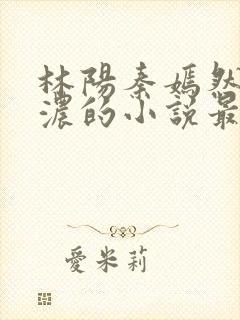 林陽秦嫣然
濃的小說最
愛米莉